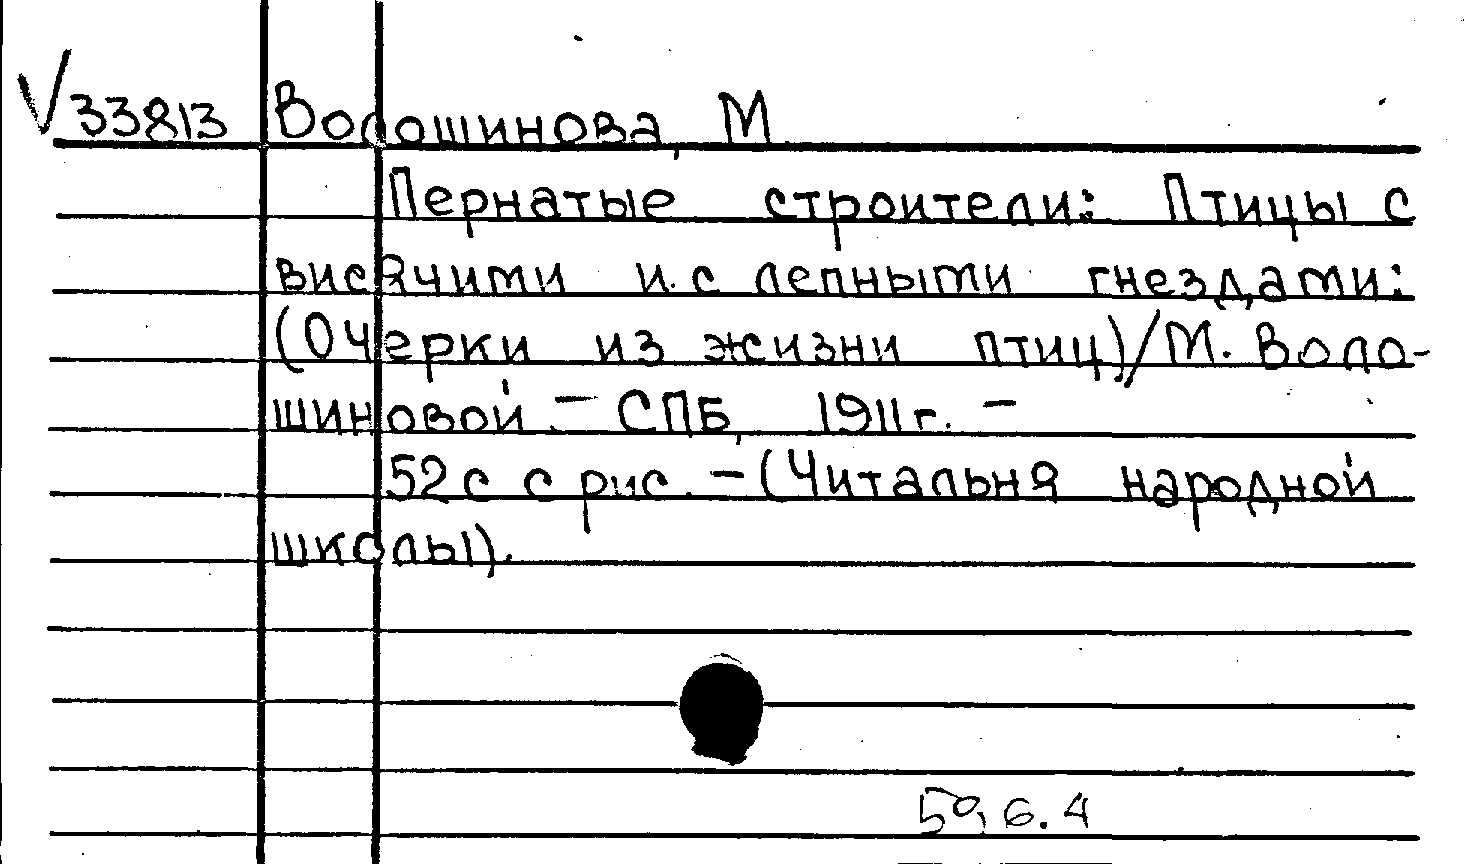 √33813 Волошинова, М
Пернатые строители: Птицы с
висячими и с лепными гнездами:
(Очерки из жизни птиц)/М. Воло-
шиновой. – СПБ, 1911г. –
52с с рис. – (Читальня народной
школы).
59,6.4